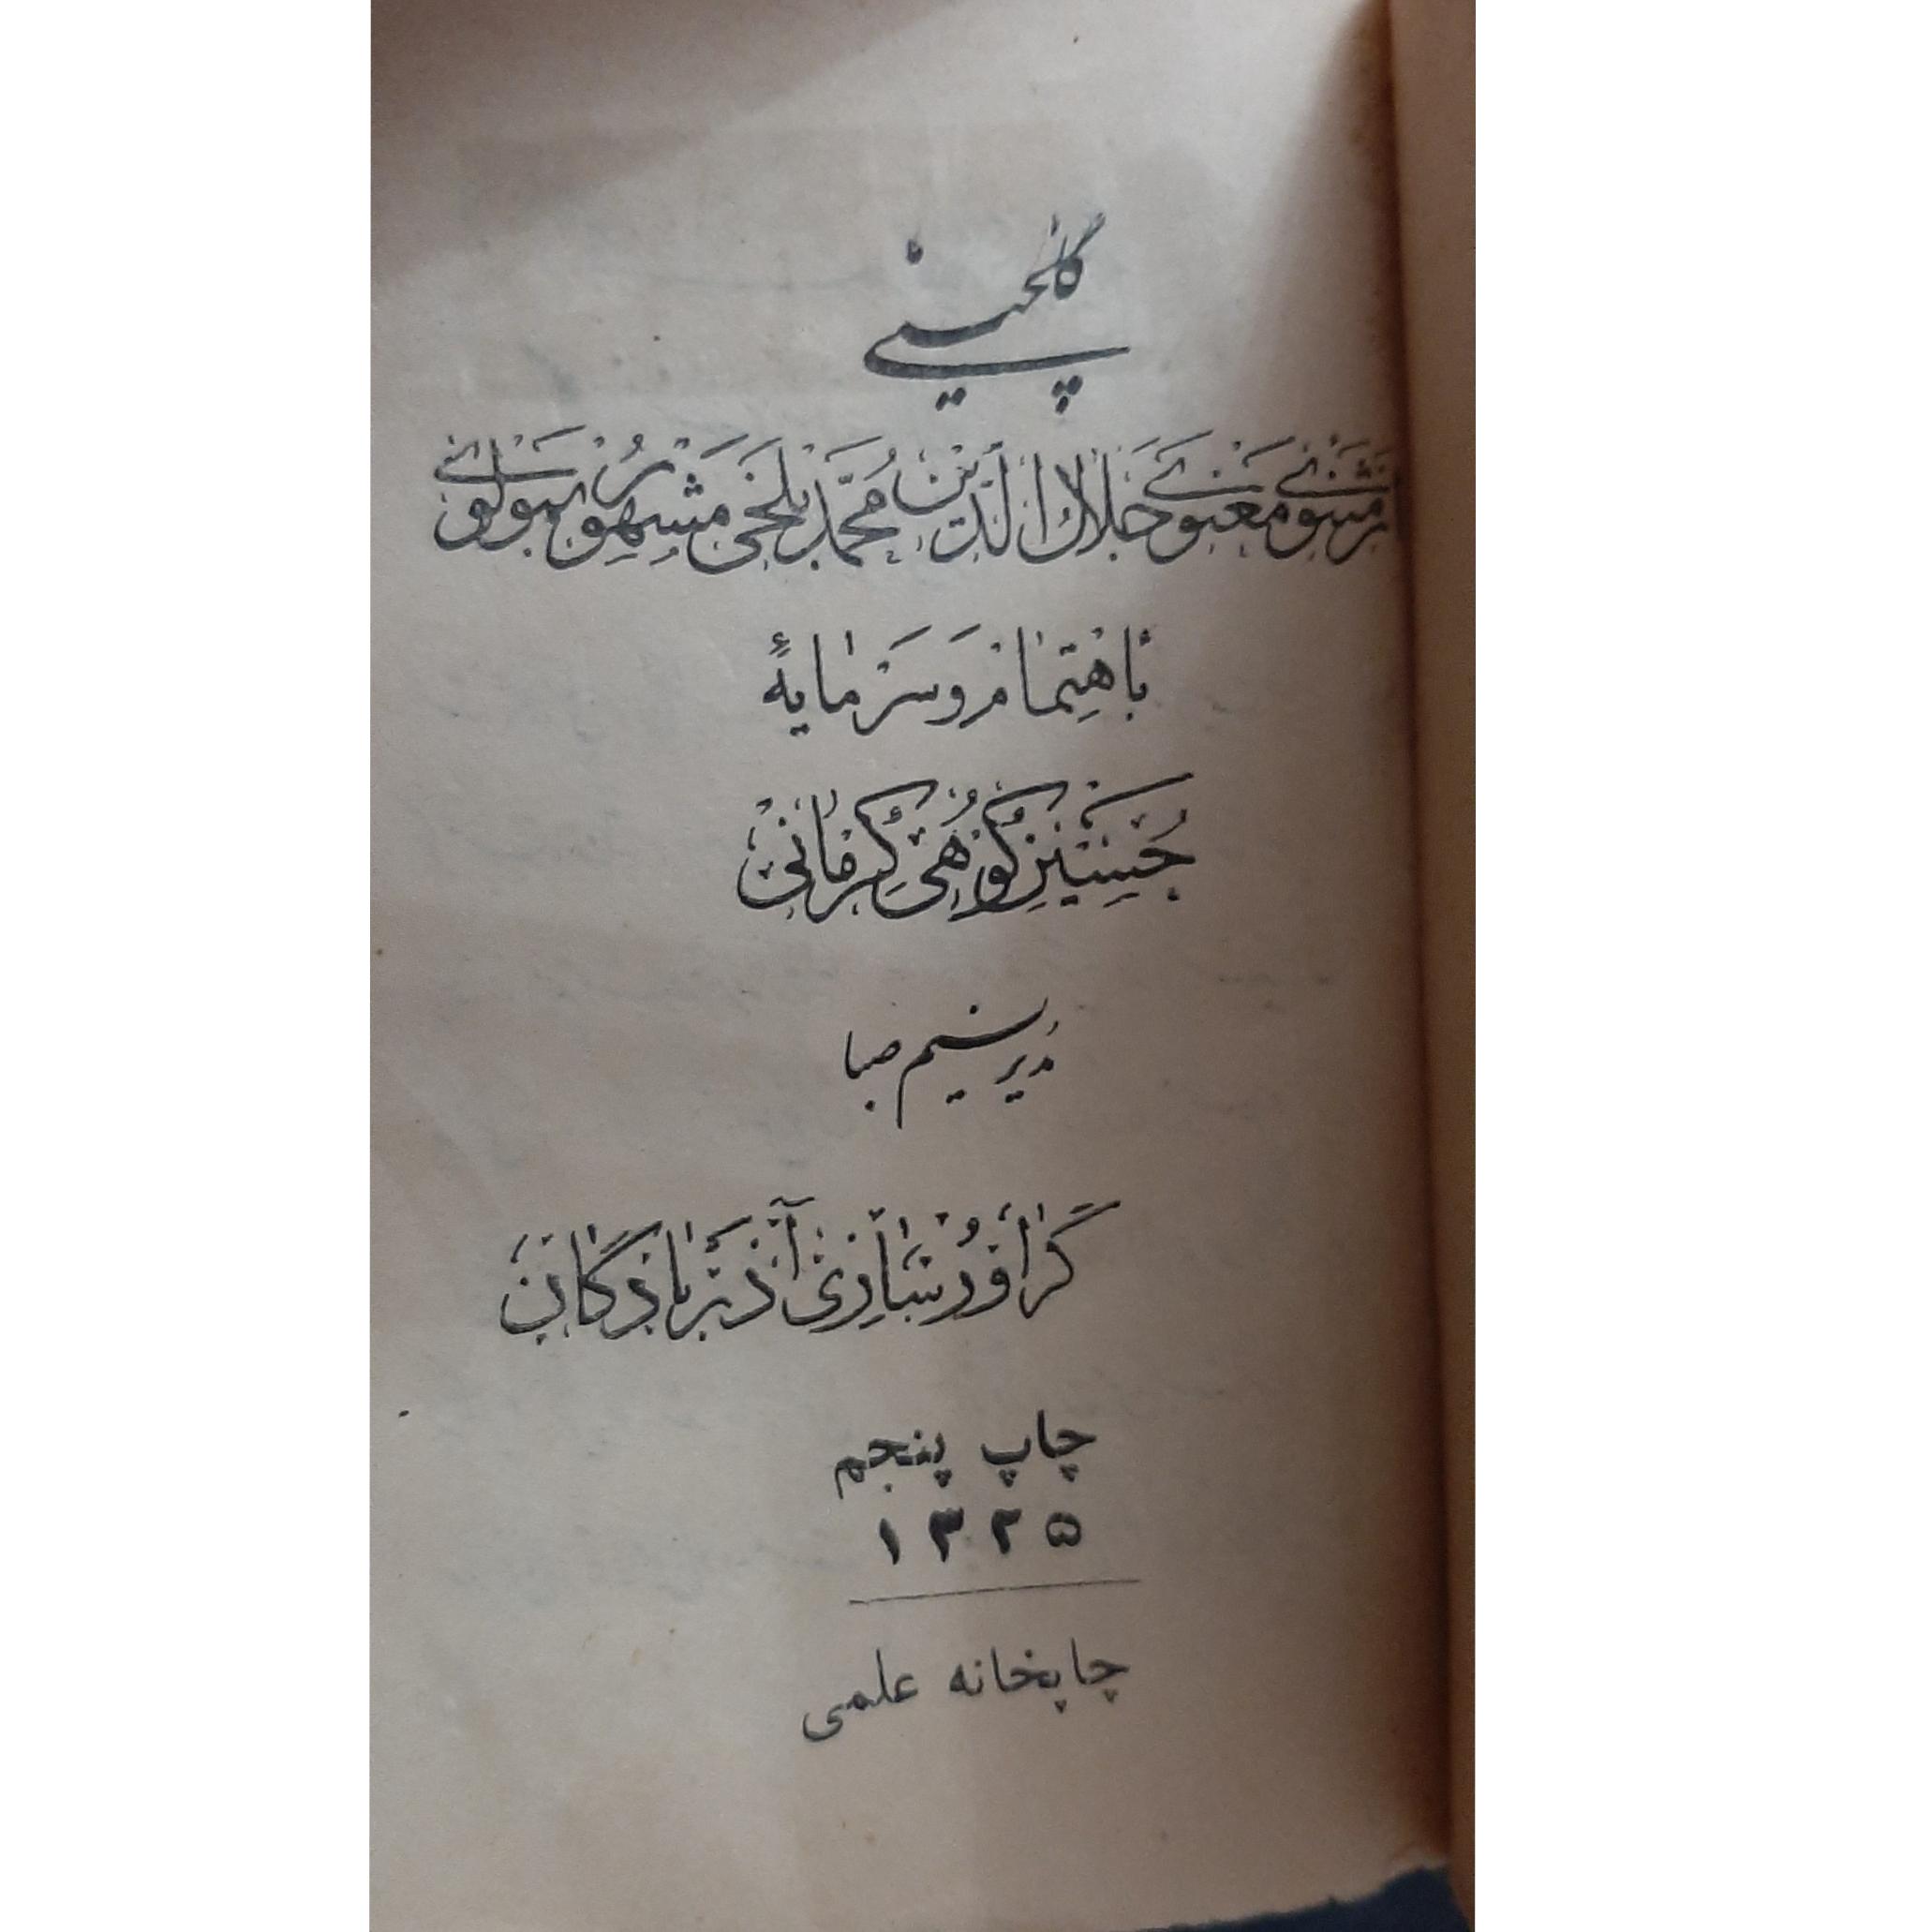 گلچینی
از مثنوی معنوی جلال الدین محمد بلخی مشهور بمولوی
باهتمام و سرمایهٔ
حسین کوهی کرمانی
مدیر نسیم صبا
گراور سازی آذربادگان
چاپ پنجم
۱۳۲۵
چاپخانه علمی